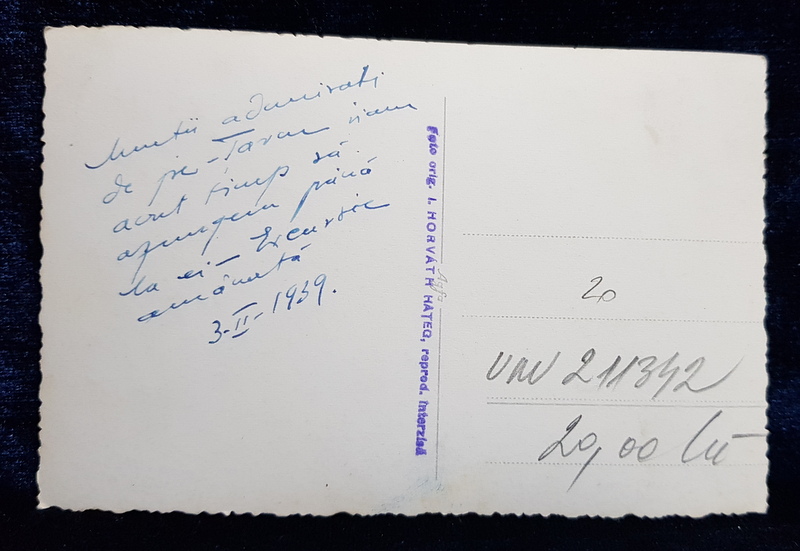 Munții admirați
de pe Taran n'am
avut timp să
ajungem până
la ei - Excursie
amânată
3-II-1939.
Foto orig. I. HORVÁTH HAȚEG, reprod. interzisă
Agfa
20
211342
20,00 lei